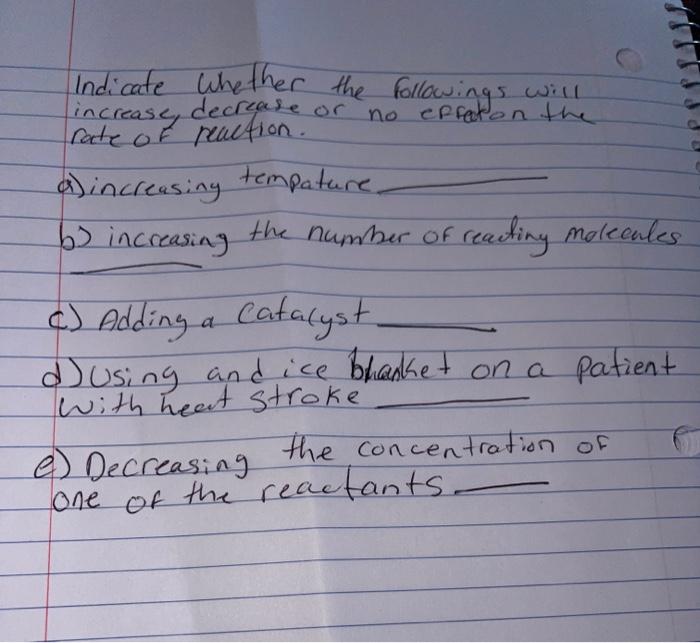 Indicate Whether the followings will
increase, decrease or no effect on the
rate of reaction.
a) increasing tempature
b) increasing the number of reacting molecules
c) Adding a Catalyst
d) Using and ice blanket on a patient
with heat stroke
e) Decreasing the concentration of
one of the reactants.